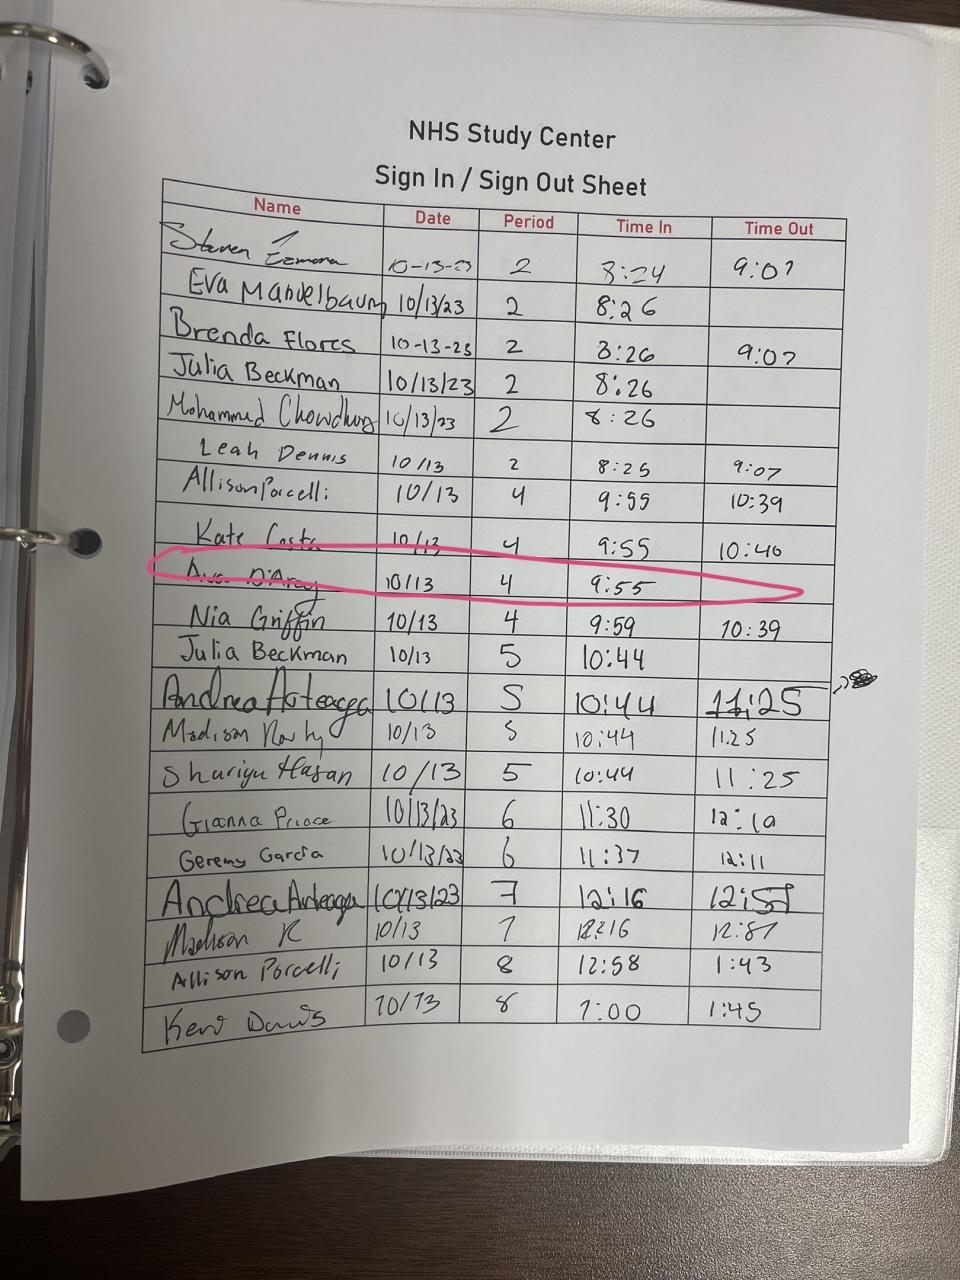 NHS Study Center
Sign In / Sign Out Sheet
Name Date Period Time In Time Out
Steven Zamora 10-13-23 2 8:24 9:07
Eva Mandelbaum 10/13/23 2 8:26
Brenda Flores 10-13-23 2 8:26 9:07
Julia Beckman 10/13/23 2 8:26
Mohammed Chowdhury 10/13/23 2 8:26
Leah Dennis 10/13 2 8:25 9:07
Allison Porcelli 10/13 4 9:55 10:39
Kate Costa 10/13 4 9:55 10:40
Ava D'Arcy 10/13 4 9:55
Nia Griffin 10/13 4 9:59 10:39
Julia Beckman 10/13 5 10:44
Andrea Arteaga 10/13 5 10:44 11:25
Madison 10/13 5 10:44 11:25
Shariyu Hasan 10/13 5 10:44 11:25
Gianna Prince 10/13/23 6 11:30 12:10
Geremy Garcia 10/13/23 6 11:37 12:11
Andrea Arteaga 10/13/23 7 12:16
Madison K 10/13 7 12:16
Allison Porcelli 10/13 8 12:58 1:43
Davis 10/13 8 1:00 1:45